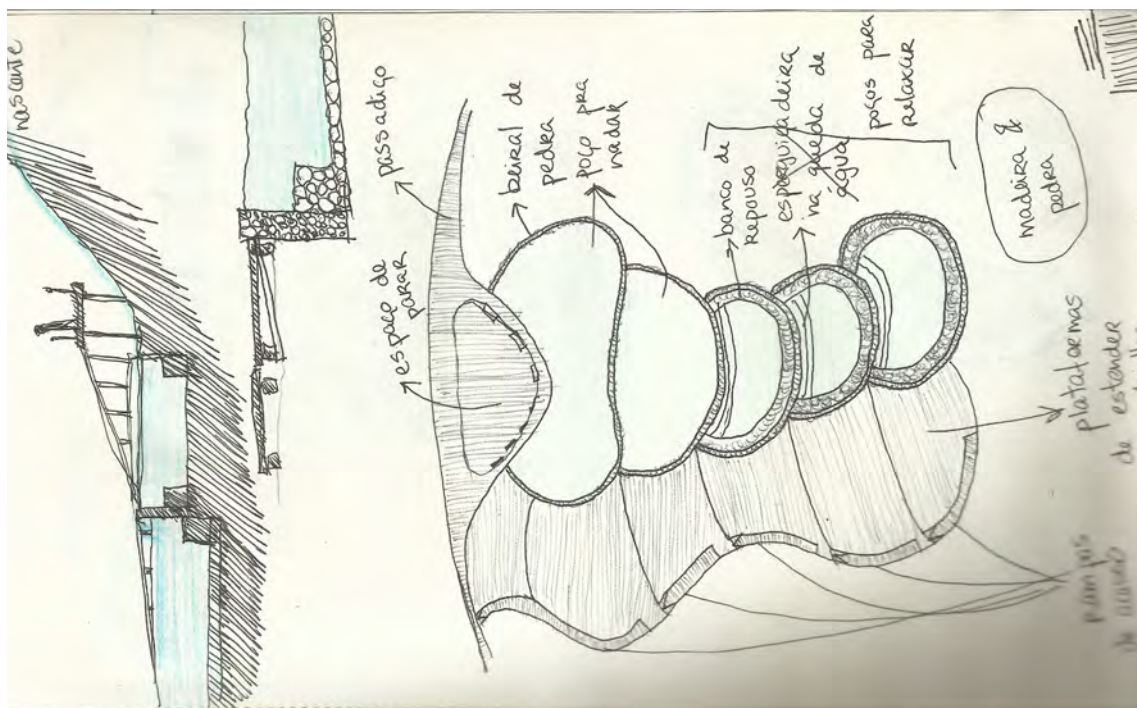 nascente
passadiço
espaço de
parar
beiral de
pedra
poço pra
nadar
banco de
repouso
espreguiçadeira
na queda de
água
poços para
relaxar
madeira &
pedra
plataformas
de estender
rampas
de acesso